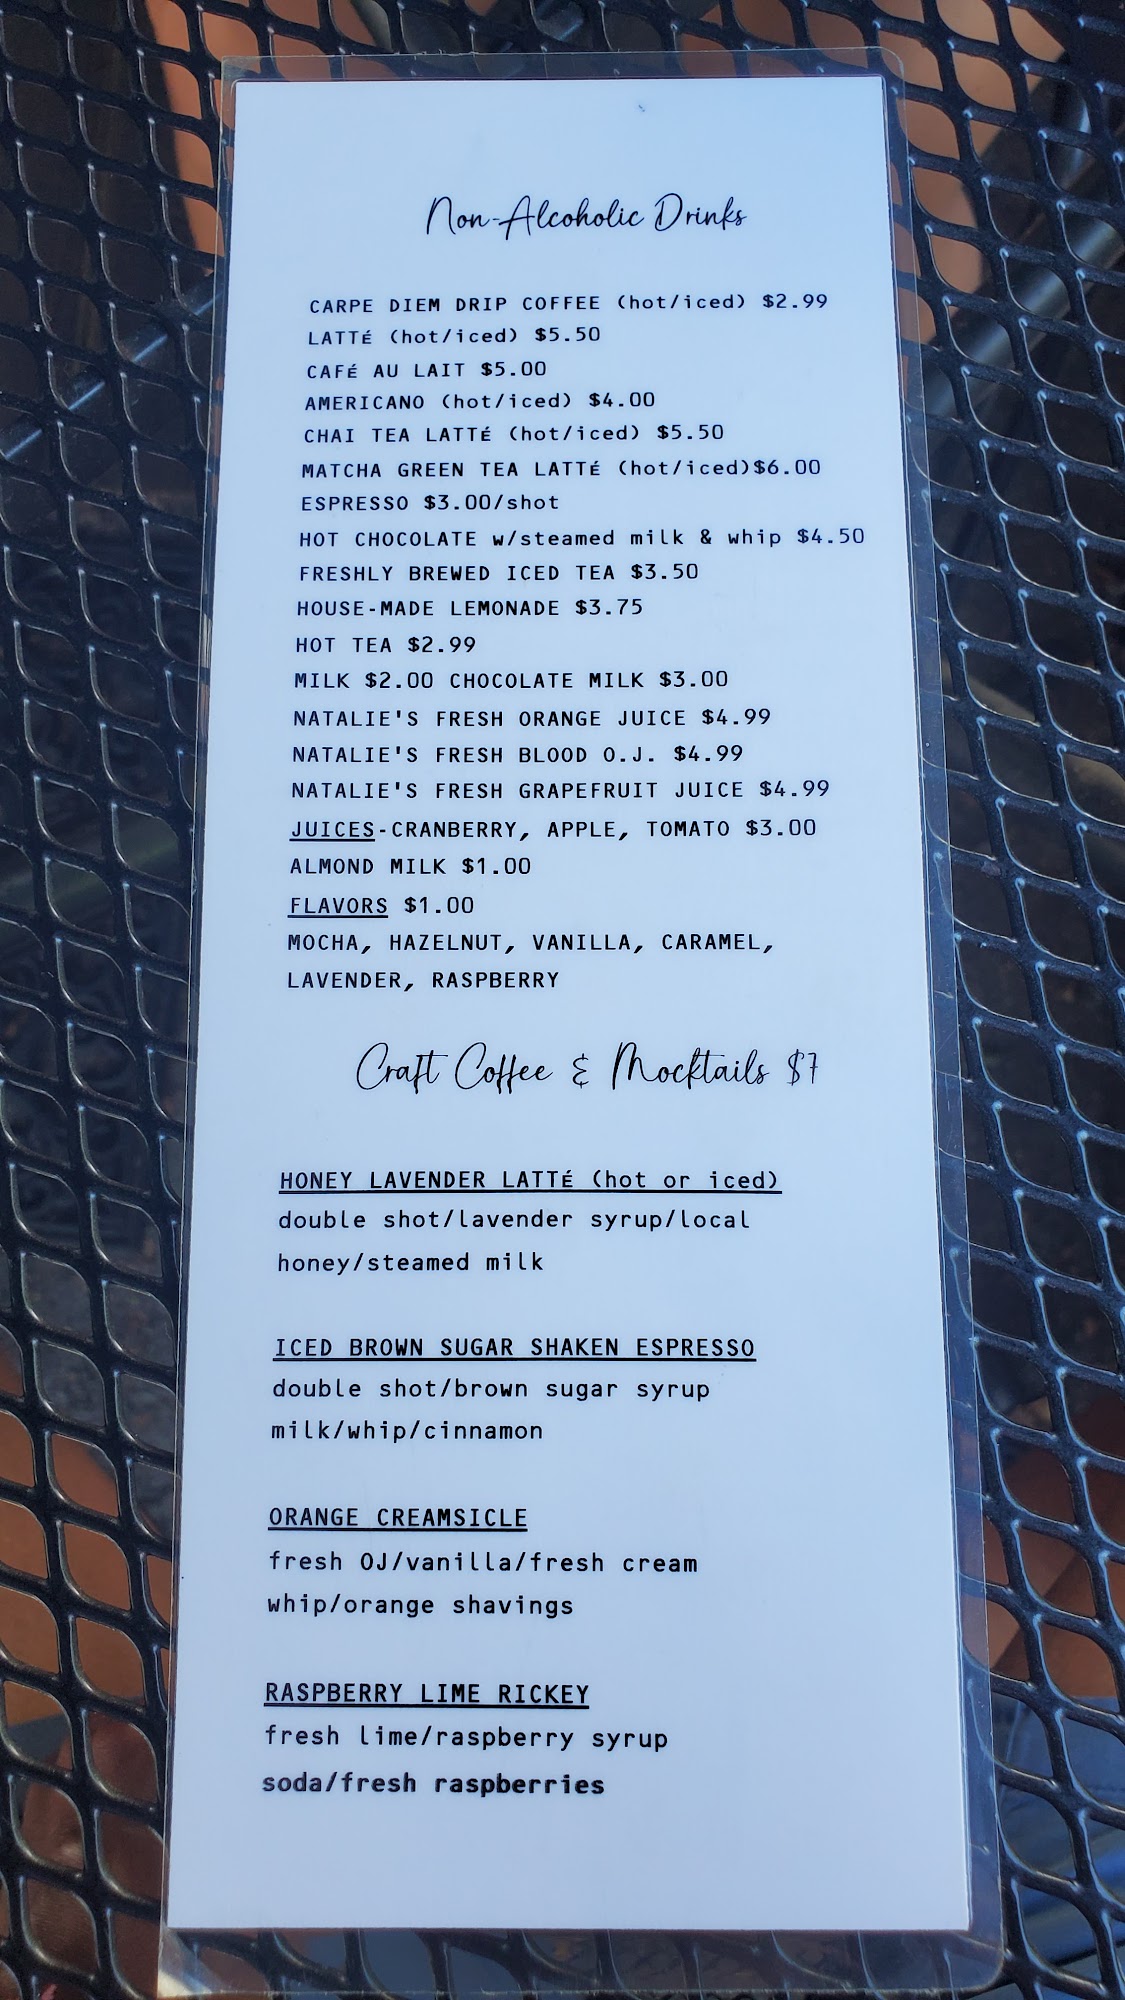 Non-Alcoholic Drinks
CARPE DIEM DRIP COFFEE (hot/iced) $2.99
LATTé (hot/iced) $5.50
CAFé AU LAIT $5.00
AMERICANO (hot/iced) $4.00
CHAI TEA LATTÉ (hot/iced) $5.50
MATCHA GREEN TEA LATTÉ (hot/iced)$6.00
ESPRESSO $3.00/shot
HOT CHOCOLATE w/steamed milk & whip $4.50
FRESHLY BREWED ICED TEA $3.50
HOUSE-MADE LEMONADE $3.75
HOT TEA $2.99
MILK $2.00 CHOCOLATE MILK $3.00
NATALIE'S FRESH ORANGE JUICE $4.99
NATALIE'S FRESH BLOOD O.J. $4.99
NATALIE'S FRESH GRAPEFRUIT JUICE $4.99
JUICES-CRANBERRY, APPLE, TOMATO $3.00
ALMOND MILK $1.00
FLAVORS $1.00
MOCHA, HAZELNUT, VANILLA, CARAMEL,
LAVENDER, RASPBERRY
Craft Coffee & Mocktails $7
HONEY LAVENDER LATTé (hot or iced)
double shot/lavender syrup/local
honey/steamed milk
ICED BROWN SUGAR SHAKEN ESPRESSO
double shot/brown sugar syrup
milk/whip/cinnamon
ORANGE CREAMSICLE
fresh OJ/vanilla/fresh cream
whip/orange shavings
RASPBERRY LIME RICKEY
fresh lime/raspberry syrup
soda/fresh raspberries